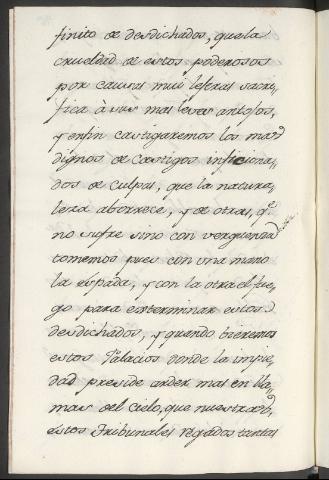 finito de desdichados, que la
crueldad de estos poderosos
por causas mui leseras sacri,,
fica à sus mas leves antojos,
y enfin castigaremos los mas
dignos de castigos, inficiona,,
dos de culpas, que la natura,,
leza aborrece, y de otras, q.e
no sufre sino con verguenza
tomemos pues con una mano
la espada, y con la otra el fue,,
go para exterminar estos
desdichados, y quando vieremos
estos Palacios donde la impie,,
dad preside arder mas en lla,,
mas del cielo, que nuestras,
estos Tribunales regados tantas